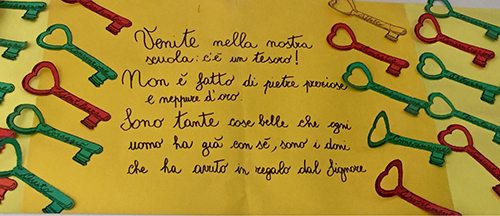 Venite nella nostra
scuola: c'é un tesoro!
Non é fatto di pietre preziose
e neppure d'oro.
Sono tante cose belle che ogni
uomo ha giá con sé, sono i doni
che ha avuto in regalo dal Signore